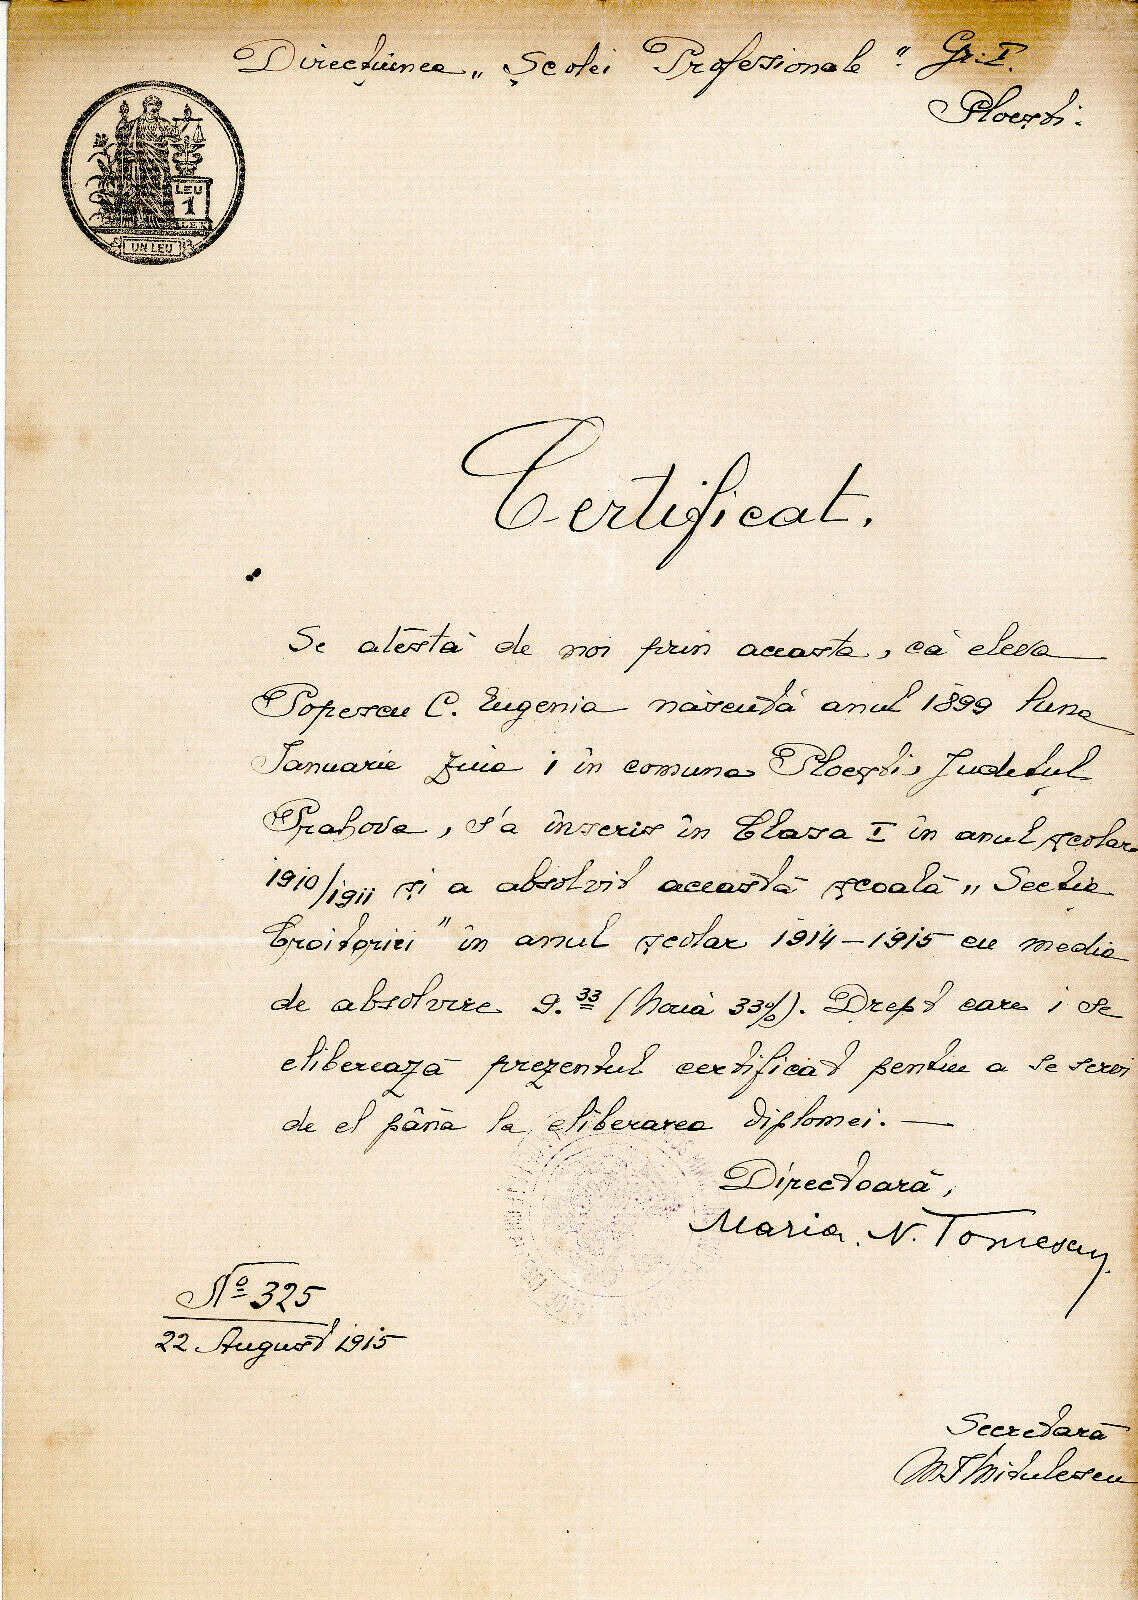 Direcțiunea „Școlei Profesionale" Gr. I.
Ploești.
LEU
1
UN LEU
Certificat.
Se atestă de noi prin aceasta, că eleva
Popescu C. Eugenia născută anul 1899 luna
Ianuarie ziua 1 în comuna Ploești, Județul
Prahova, s'a înscris în Clasa I în anul școlar
1910/1911 și a absolvit această școală „Secția
Croitoriei" în anul școlar 1914–1915 cu media
de absolvire 9.33 (Nouă 33%). Drept care i se
eliberează prezentul certificat pentru a se servi
de el până la eliberarea diplomei. —
Directoară,
Maria. N. Tomescu
No 325
22 August 1915
Secretară